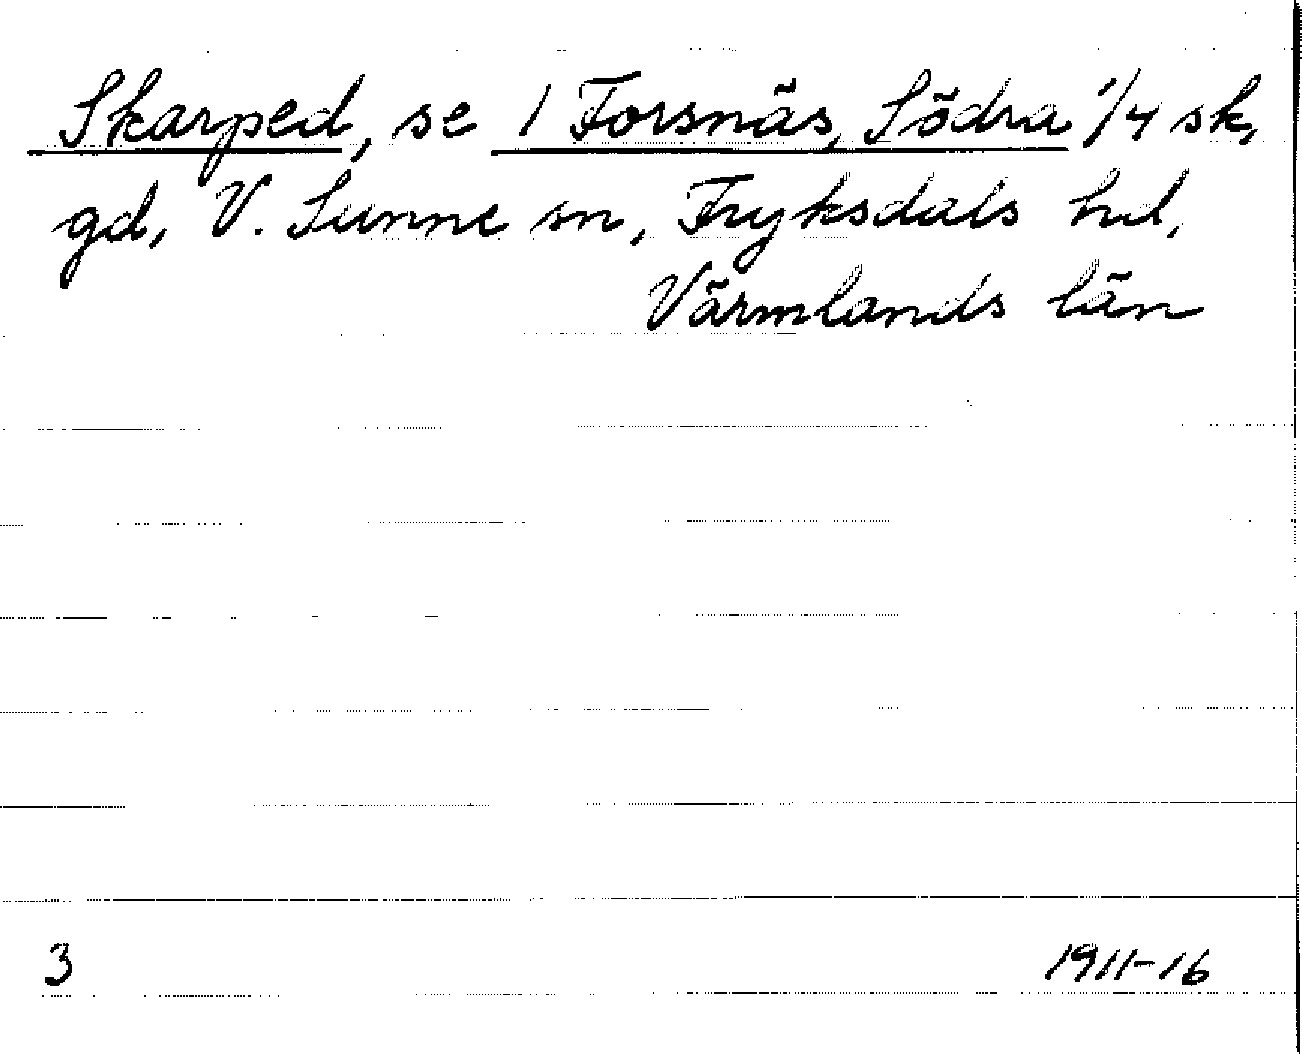 Skarped, se 1 Forsnäs, Södra 1/4 sk,
gd, V. Sunne sn, Fryksdals hd,
Värmlands län
3 1911-16